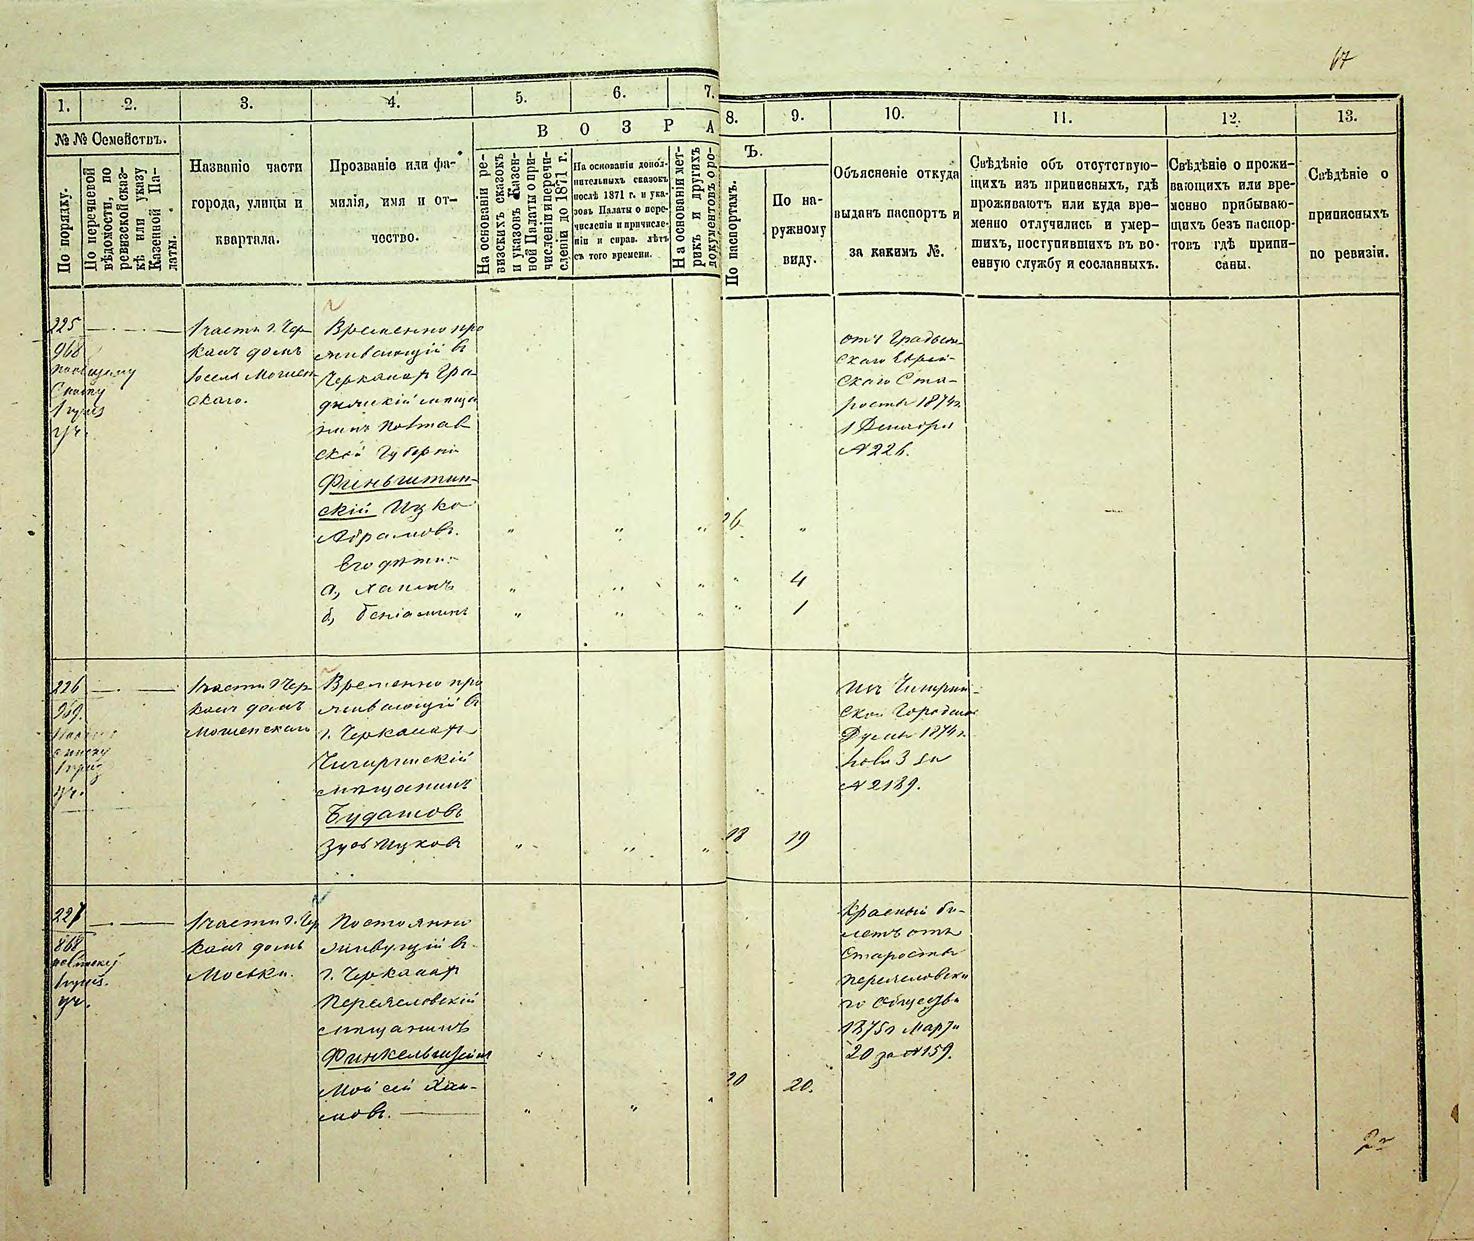 67
1.
2.
3.
4.
5.
6.
7.
8.
9.
10.
11.
12.
13.
№ № Семействъ.
По порядку.
По перечневой
вѣдомости, по
ревизской сказ-
кѣ или указу
Казенной Па-
латы.
Названіе части
города, улицы и
квартала.
Прозваніе или фа-
милія, имя и от-
чество.
В О З Р А
Ъ.
На основаніи ре-
визскихъ сказокъ
и указовъ Казен-
ной Палаты о при-
численіи и перечи-
сленіи до 1871 г.
На основаніи допол-
нительныхъ сказокъ
послѣ 1871 г. и ука-
зовъ Палаты о пере-
численіи и причисле-
ніи и справ. лѣтъ
съ того времени.
На основаніи мет-
рикъ и другихъ
документовъ о ро-
По паспортамъ.
По на-
ружному
виду.
Объясненіе откуда
выданъ паспортъ и
за какимъ №.
Свѣдѣніе объ отсутствую-
щихъ изъ приписныхъ, гдѣ
проживаютъ или куда вре-
менно отлучились и умер-
шихъ, поступившихъ въ во-
енную службу и сосланныхъ.
Свѣдѣніе о прожи-
вающихъ или вре-
менно прибываю-
щихъ безъ паспор-
товъ гдѣ припи-
саны.
Свѣдѣніе о
приписныхъ
по ревизіи.
225
968
Списку
уч.
1 части г. Чер
касъ домъ
Іоселя Мошен
скаго.
Временно про
живающій въ
Черкасахъ Гра
дижскій мѣща
нинъ Полтав
ской Губерніи
Финьштин-
скій Ицко
Абрамовъ.
Его дѣти:
а, Хаимъ
б, Беніаминъ
26
4
1
отъ Градиж
скаго Еврей-
скаго Ста-
росты 1874 г.
1 Декабря
№ 226.
226
969.
уч.
1 части г Чер
касъ домъ
Мошенскаго
Временно про
живающій въ
г. Черкасахъ
Чигиринскій
мѣщанинъ
Будашовъ
Зусь Ицковъ
18
19
Изъ Чигирин-
ской Городской
Думы 1874 г.
№ 2189.
227
868
уч.
1 части г. Чер
касъ домъ
Моськи.
Постоянно
живущій въ
г. Черкасахъ
Переяславскій
мѣщанинъ
Финкельштейнъ
Мойсей Хаи-
мовъ.
20
20.
Красный би-
летъ отъ
Старосты
Переяславска
го Общества
1875 г Марта
20 за № 159.